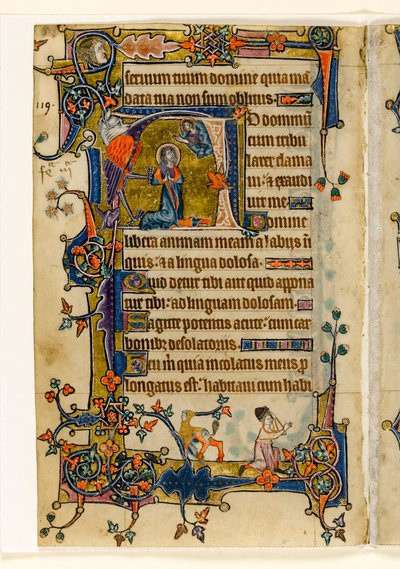 seruum tuum domine quia mā
data tua non sum oblitus.
119.
AD dominū
cum tribu
larer clama
ui: & exaudi
uit me.
Domine
libera animam meam a labijs īi
quis: & a lingua dolosa.
Quid detur tibi aut quid appona
tur tibi: ad linguam dolosam.
Sagitte potentis acute: cum car
bonibꝫ desolatorijs.
Heu m̄ quia incolatus meus ꝓ
longatus est: habitaui cum habi